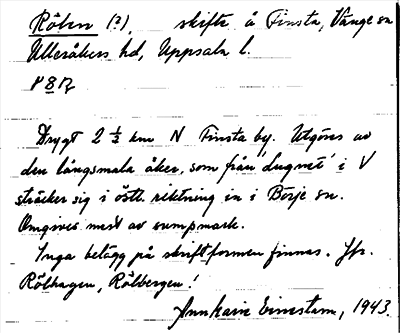 Rölen (?), skifte å Finsta, Vänge sn
Ulleråkers hd, Uppsala l.
Drygt 2 ½ km N Finsta by. Utgöres av
den långsmala åker, som från 'Lugnet' i V
sträcker sig i östl. riktning in i Börje sn.
Omgives mest av sumpmark.
Inga belägg på skriftformen finnas. Jfr.
Rölhagen, Rölbergen!
Ann Karin 1943.